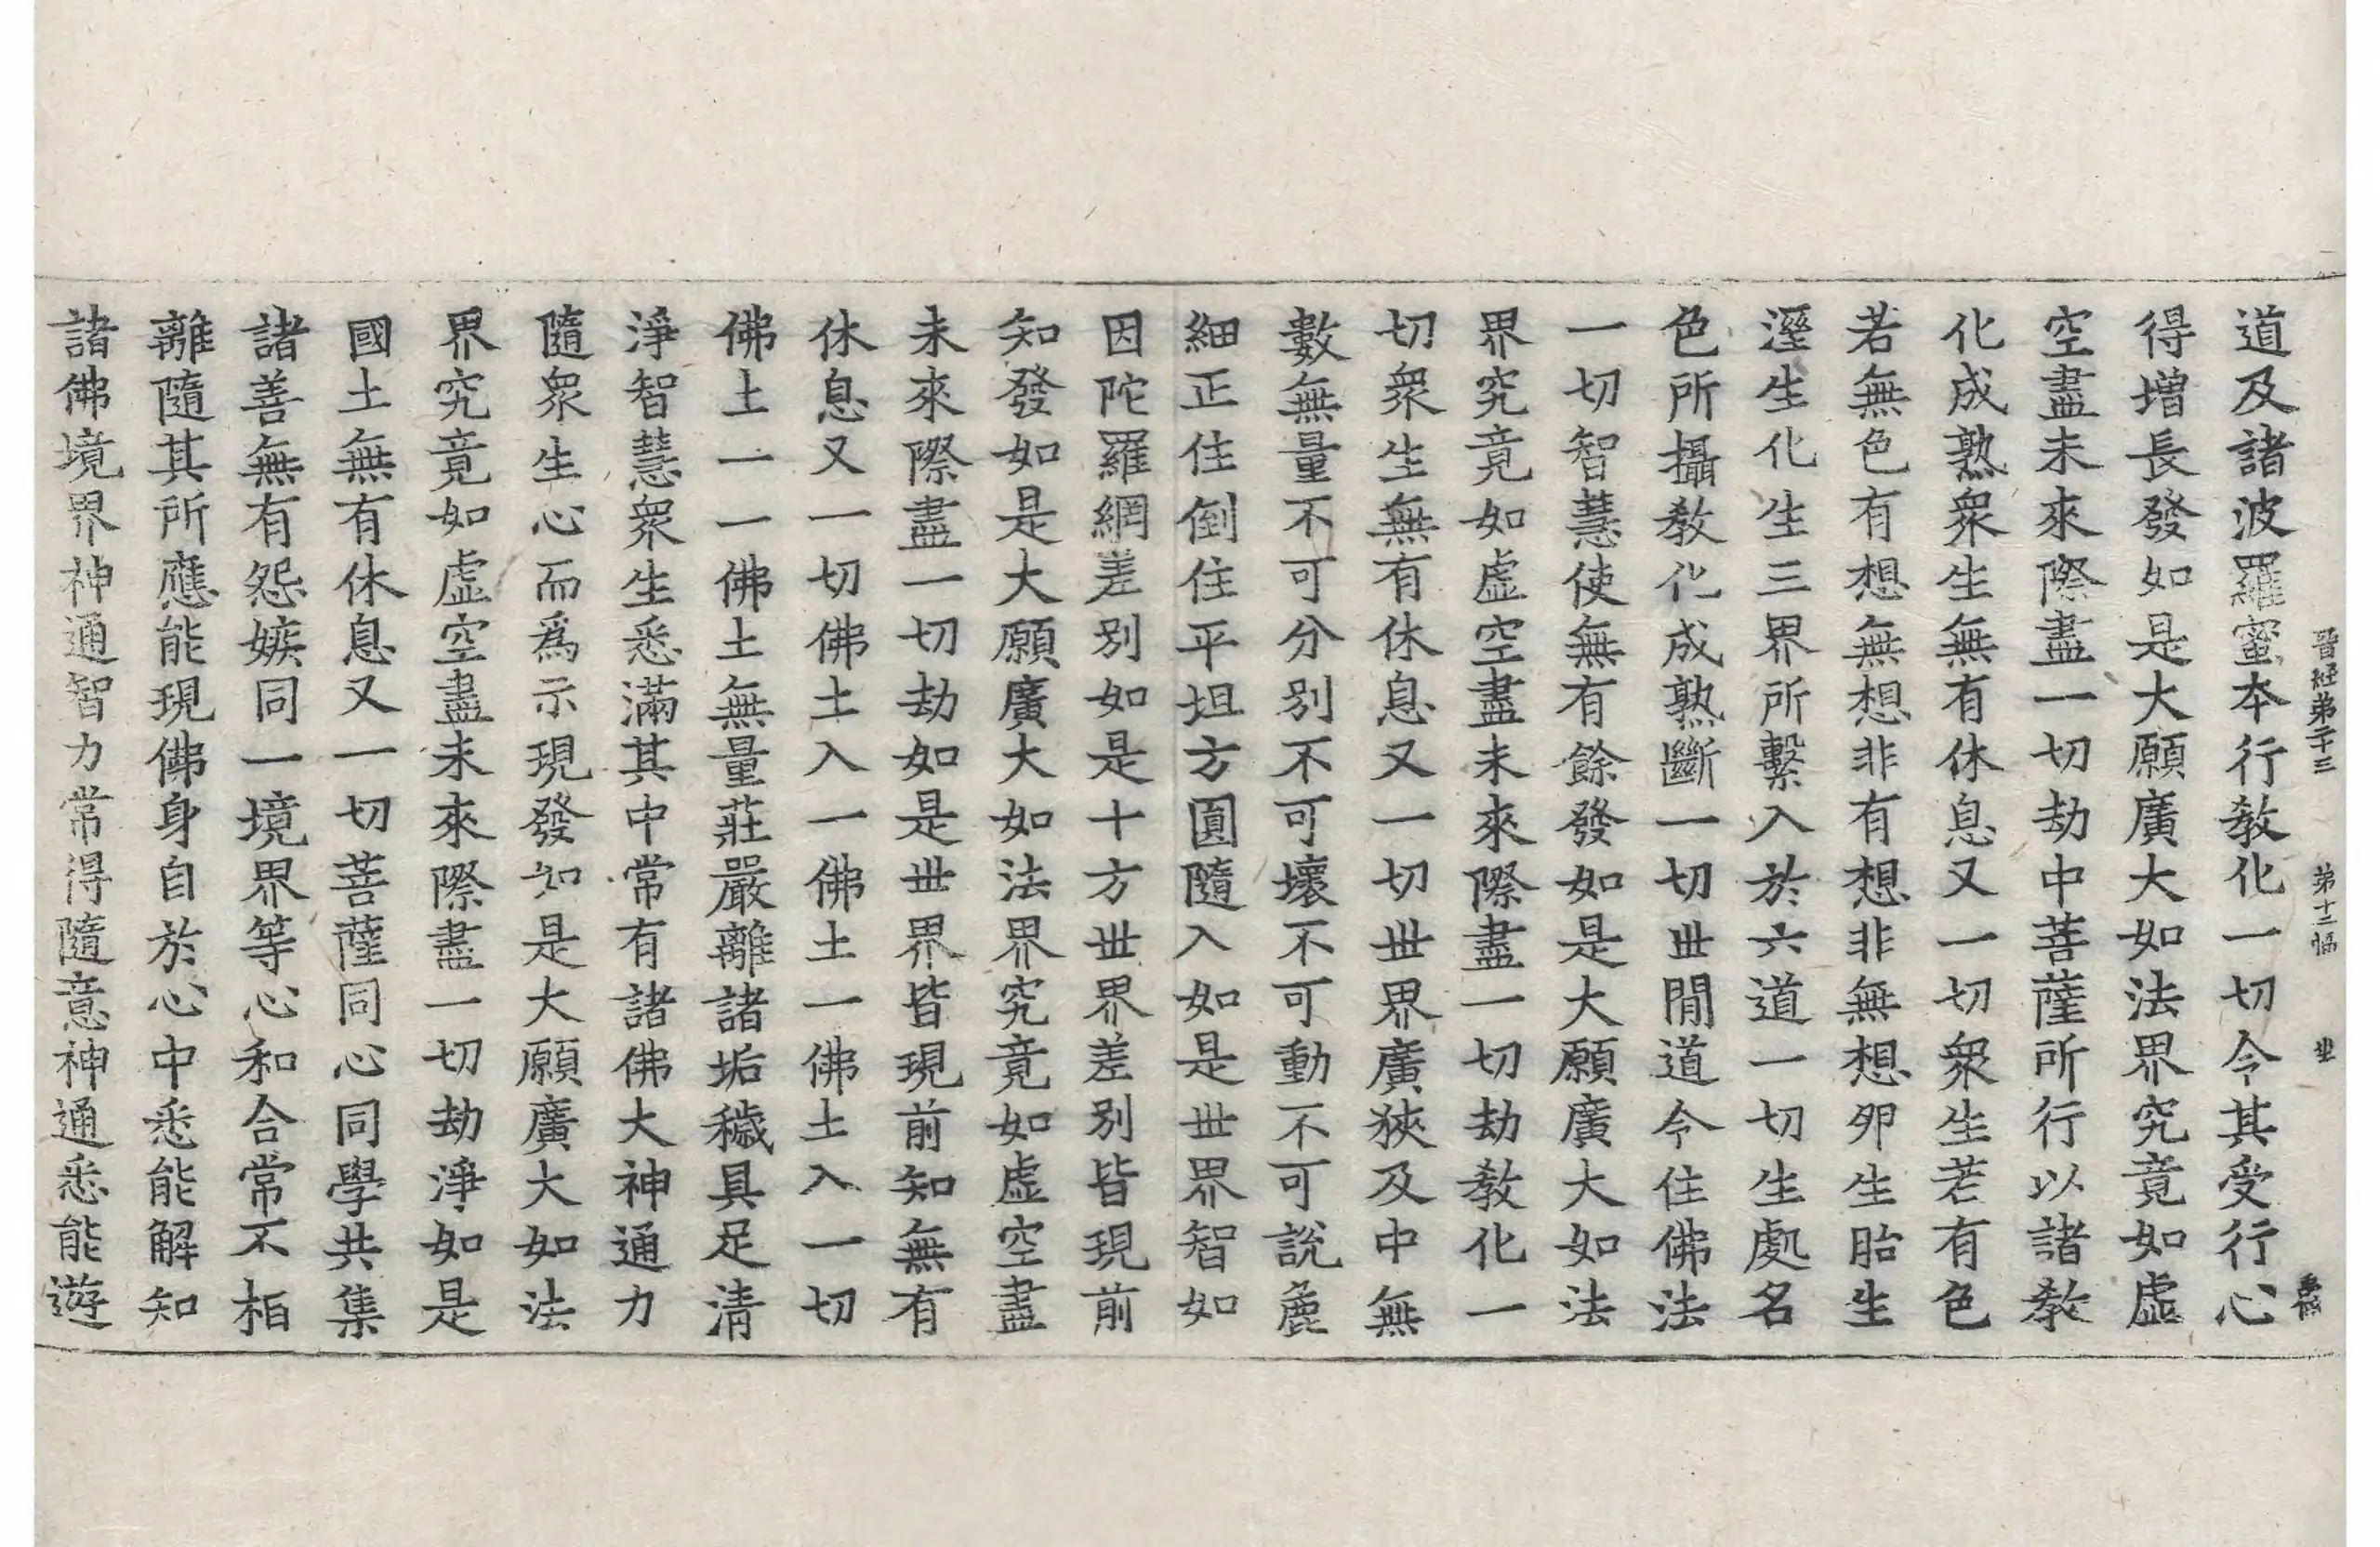 晋経第二十三 第十二幅 丗
道及諸波羅蜜本行教化一切令其受行心
得増長發如是大願廣大如法界究竟如虛
空盡未來際盡一切劫中菩薩所行以諸教
化成熟衆生無有休息又一切衆生若有色
若無色有想無想非有想非無想卵生胎生
溼生化生三界所繫入於六道一切生處名
色所攝教化成熟斷一切丗閒道令住佛法
一切智慧使無有餘發如是大願廣大如法
界究竟如虛空盡未來際盡一切劫教化一
切衆生無有休息又一切丗界廣狹及中無
數無量不可分別不可壞不可動不可說麁
細正住倒住平坦方圓隨入如是丗界智如
因陀羅網差別如是十方丗界差別皆現前
知發如是大願廣大如法界究竟如虛空盡
未來際盡一切劫如是丗界皆現前知無有
休息又一切佛土入一佛土一佛土入一切
佛土一一佛土無量莊嚴離諸垢穢具足清
淨智慧衆生悉滿其中常有諸佛大神通力
隨衆生心而爲示現發如是大願廣大如法
界究竟如虛空盡未來際盡一切劫淨如是
國土無有休息又一切菩薩同心同學共集
諸善無有怨嫉同一境界等心和合常不相
離隨其所應能現佛身自於心中悉能解知
諸佛境界神通智力常得隨意神通悉能遊